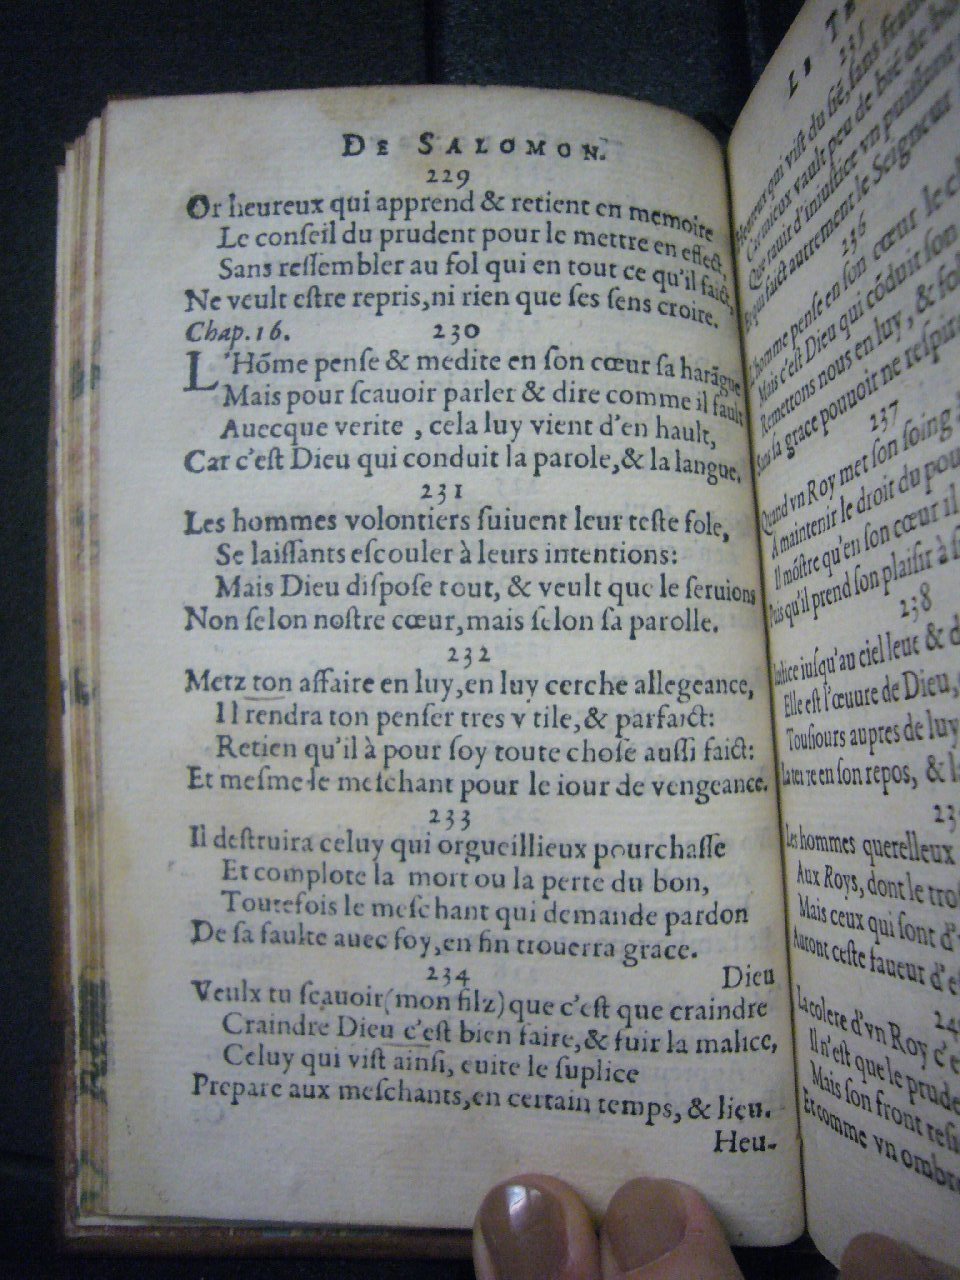 DE SALOMON.
229
Or heureux qui apprend & retient en memoire
Le conseil du prudent pour le mettre en effect,
Sans ressembler au fol qui en tout ce qu'il faict,
Ne veult estre repris, ni rien que ses sens croire.
Chap. 16. 230
L'Hõme pense & medite en son cœur sa harãgue
Mais pour scauoir parler & dire comme il fault
Auecque verite, cela luy vient d'en hault,
Car c'est Dieu qui conduit la parole, & la langue.
231
Les hommes volontiers suiuent leur teste fole,
Se laissants escouler à leurs intentions:
Mais Dieu dispose tout, & veult que le seruions
Non selon nostre cœur, mais selon sa parolle.
232
Metz ton affaire en luy, en luy cerche allegeance,
Il rendra ton penser tres vtile, & parfaict:
Retien qu'il à pour soy toute chose aussi faict:
Et mesme le meschant pour le iour de vengeance.
233
Il destruira celuy qui orgueillieux pourchasse
Et complote la mort ou la perte du bon,
Toutefois le meschant qui demande pardon
De sa faulte auec foy, en fin trouerra grace.
234 Dieu
Veulx tu scauoir (mon filz) que c'est que craindre
Craindre Dieu c'est bien faire, & fuir la malice,
Celuy qui vist ainsi, euite le suplice
Prepare aux meschants, en certain temps, & lieu.
Heu-
235
Heureux qui vist du sié, sans
Car mieux vault peu de bié
Que rauir d'iniustice vn puissant
Et qui faict autrement le Seigneur
236
L'homme pense en son cœur le
Mais c'est Dieu qui cõduit son
Remettons nous en luy, &
Sans sa grace pouuoir ne
237
Quand vn Roy met son soing
A maintenir le droit du
Il mõstre qu'en son cœur il
Puis qu'il prend son plaisir à
238
iusqu'au ciel leue &
Elle est l'œuure de Dieu,
Tousiours aupres de luy
La terre en son repos, &
Les hommes querelleux
Aux Roys, dont le
Mais ceux qui sont
Auront ceste faueur
La colere d'vn Roy
Il n'est que le
Mais son front
Et comme vn